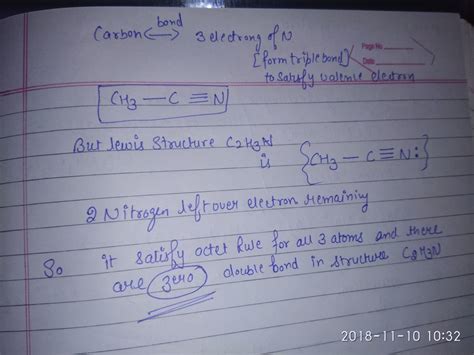 bond
Carbon ⟷ 3 electrong of N
[form triple bond]
to satisfy valence electron
Page No.
Date
CH3 — C ≡ N
But lewis Structure C2H3N is {CH3 — C ≡ N:}
2 Nitrogen left over electron remaining
So it satisfy octet Rule for all 3 atoms and there
are 3ero double bond in structure C2H3N
2018-11-10 10:32